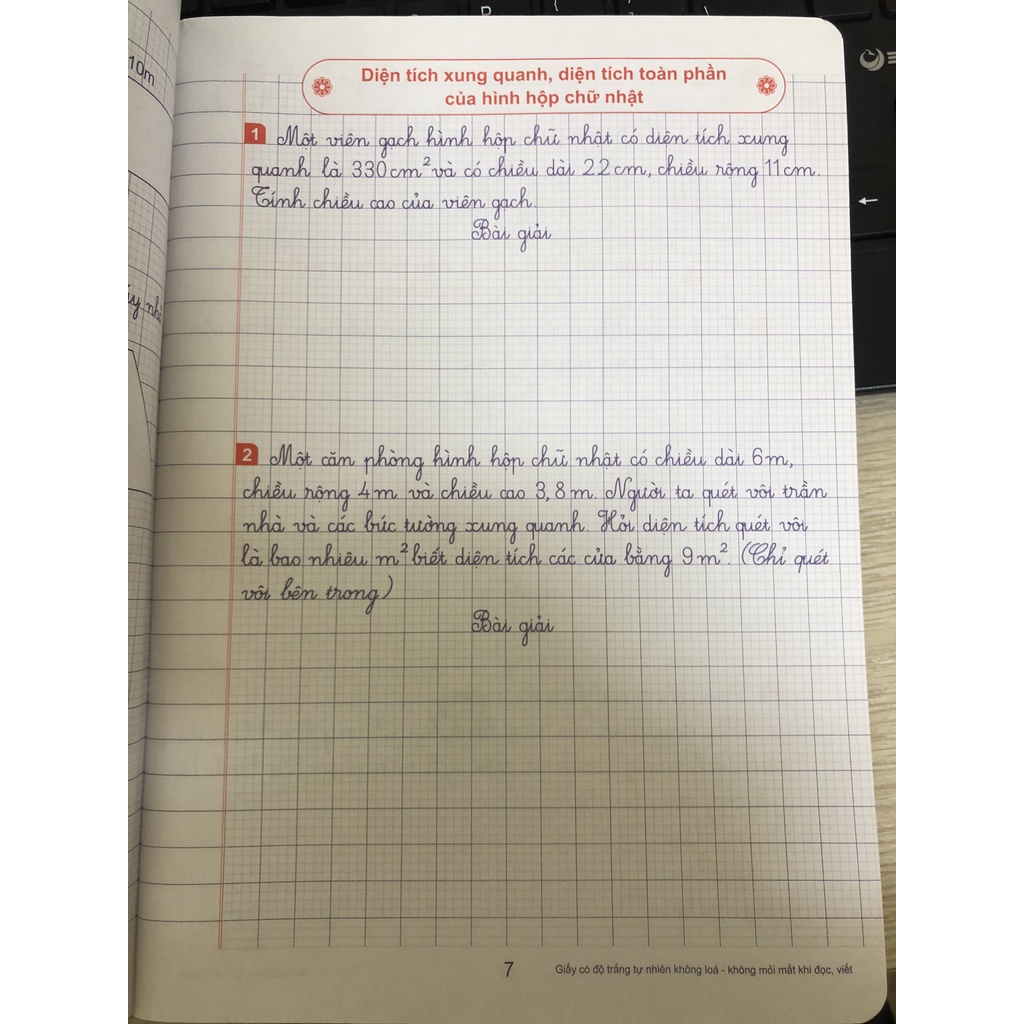 10m
Diện tích xung quanh, diện tích toàn phần
của hình hộp chữ nhật
1 Một viên gạch hình hộp chữ nhật có diện tích xung
quanh là 330cm² và có chiều dài 22cm, chiều rộng 11cm.
Tính chiều cao của viên gạch.
Bài giải
2 Một căn phòng hình hộp chữ nhật có chiều dài 6m,
chiều rộng 4m và chiều cao 3,8m. Người ta quét vôi trần
nhà và các bức tường xung quanh. Hỏi diện tích quét vôi
là bao nhiêu m² biết diện tích các cửa bằng 9m². (Chỉ quét
vôi bên trong)
Bài giải
7 Giấy có độ trắng tự nhiên không loá - không mỏi mắt khi đọc, viết